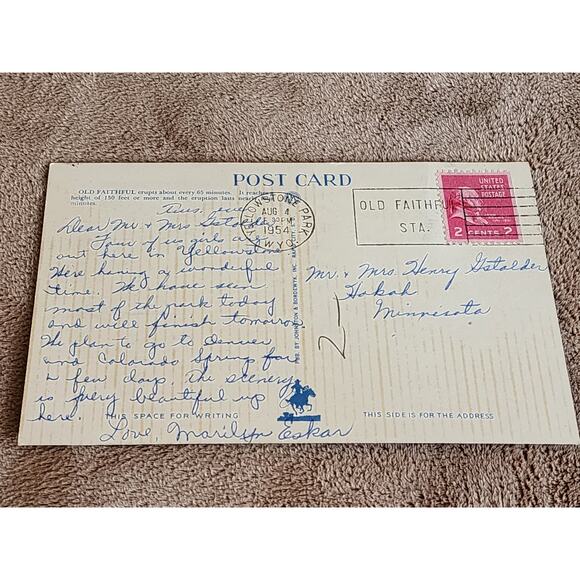 POST CARD
OLD FAITHFUL erupts about every 65 minutes. It reaches a
height of 150 feet or more and the eruption lasts nearly
minutes.
Tues. eve
Dear Mr. & Mrs Gstalder
Four of us girls are
out here in Yellowstone
Here having a wonderful
time. We have seen
most of the park today
and will finish tomorrow
We plan to go to Denver
and Colorado Springs for
a few days The scenery
is very beautiful up
here.
Love, Marilyn Eskar
THIS SPACE FOR WRITING
PUB. BY JOHNSTON & BORDEWYK, INC.
YELLOWSTONE PARK
AUG 4
PM
1954
WYO.
OLD FAITHFUL
STA.
UNITED
STATES
POSTAGE
2 CENTS 2
Mr. & Mrs. Henry Gstalder
Hokah
Minnesota
2-
THIS SIDE IS FOR THE ADDRESS